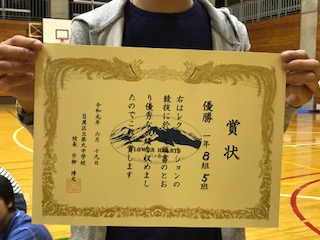 賞状
優勝 一年B組5班
右はレクリエーションの
競技に於て頭書のとお
り優秀な成績を収めまし
たのでこれを賞します
令和元年 六月 十九日
目黒区立第九中学校
校長 片柳 博文